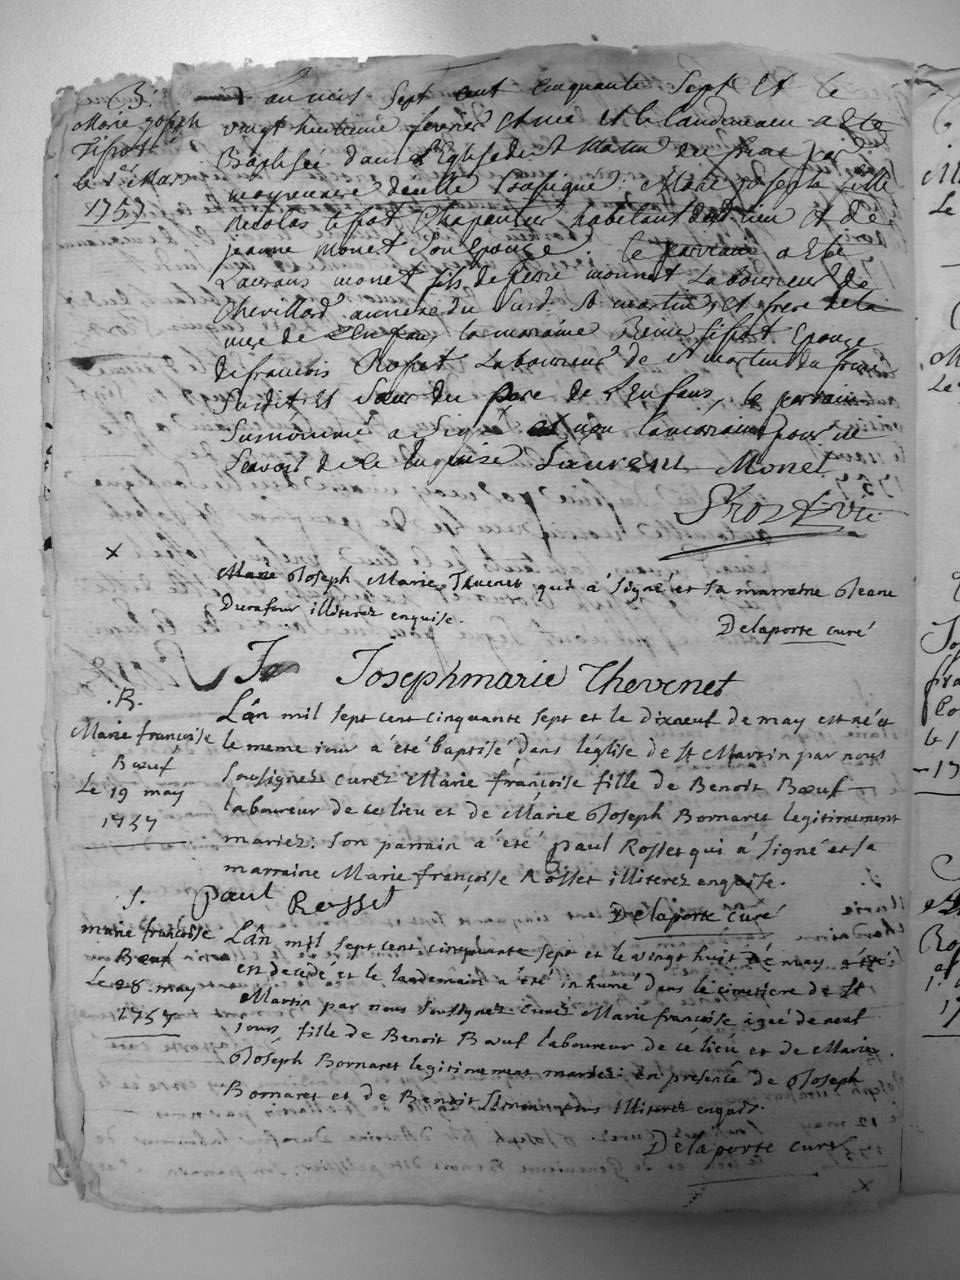 B.
Marie joseph
tifsot
le 1er Mars
1757
an mil Sept cent Cinquante Sept Et le
vingt huitieme fevrier Est née et le landemain a Eté
Baptisée dans L'Eglise de St Martin du frene par
moy vicaire de ville Soussigné; Marie joseph fille
Nicolas tifsot Chapentier habitant dud lieu et de
jeanne monet Son Epouze le parrain a Eté
Laurans monet fils de pierre monnet Laboureur de
Chevillard annexe du Susd. St martin, et frere de la
mere de L'Enfan, la maraine Reine tifsot Epouze
de francois Rosset Laboureur de st martin du frene
Susdit et Sœur du pere de L'Enfans, le parrain
Surnommé a Signé et non la maraine pour ne
Scavoir de ce Enquise Laurent Monet
Marie Joseph Marie Thevenet qui á signé et sa marraine Jeane
Durafour illiterez enquise.
Delaporte curé
Jo Josephmarie Thevenet
.B.
Marie françoise
Bœuf
Le 19 may
1757
L'ân mil sept cent cinquante sept et le dixneuf de may est né et
le meme jour á été baptisé dans l'église de st Martin par nous
soussignez curez Marie françoise fille de Benoit Bœuf
laboureur de ce lieu et de Marie Joseph Bornaret legitimement
mariez: son parrain á été paul Rosset qui á signé et sa
marraine Marie françoise Rosset illiterez enquise.
paul Rosset
Delaporte curé
S.
marie françoise
Bœuf
Le 28 may
1757
L'ân mil sept cent cinquante sept et le vingt huit de may a été
en décédé et le landemain a été inhumé dans le cimetiere de st
Martin par nous soussignez curez Marie françoise agée de neuf
jours fille de Benoit Bœuf laboureur de ce lieu et de Marie
Joséph Bornaret legitimement mariez: en presence de Joseph
Bornaret et de Benoit illiterez enquis.
Delaporte curé